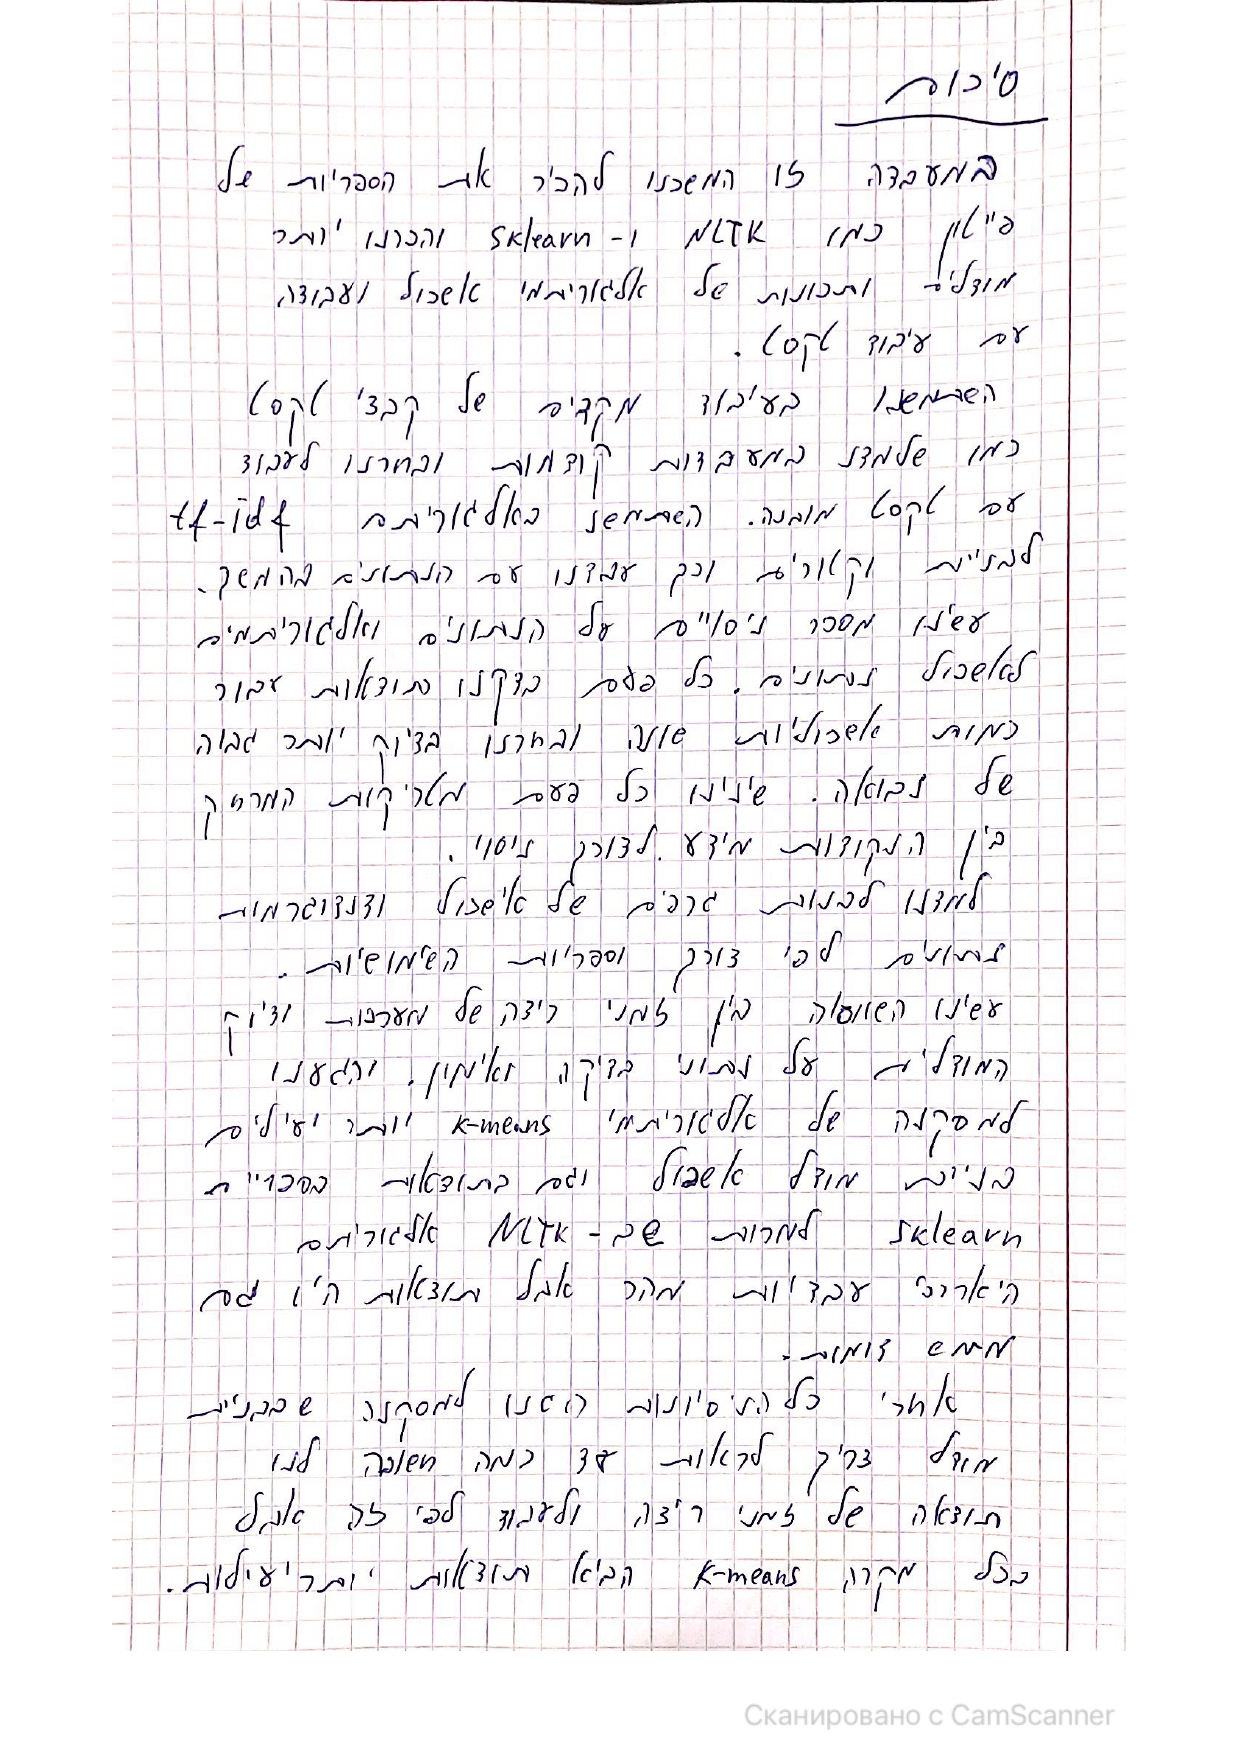 סיכום
במעבדה זו המשכנו להכיר את הספריות של
פייטון כמו NLTK ו- Sklearn והכרנו יותר
מודלים ותכונות של אלגוריתמי אשכול ועבודה
עם עיבוד טקסט.
השתמשנו בעיבוד מקדים של קבצי טקסט
כמו שלמדנו במעבדות קודמות ובחרנו לעבוד
עם טקסט מובנה. השתמשנו באלגוריתם tf-idf
לבניית וקטורים וכך עבדנו עם הנתונים בהמשך.
עשינו מספר ניסויים על הנתונים ואלגוריתמים
לאשכול נתונים. כל פעם בדקנו תוצאות עבור
כמות אשכוליות שונה ובחרנו בדיוק יותר גבוה
של נבואה. שינינו כל פעם מטריקות המרחק
בין הנקודות מידע לצורך ניסוי.
למדנו לבנות גרפים של אישכול ודנדוגרמות
נתונים לפי צורך וספריות השימושיות.
עשינו השוואה בין זמני ריצה של מערכות ודיוק
המודלים על נתוני בדיקה ואימון. והגענו
למסקנה של אלגוריתמי k-means יותר יעילים
בניית מודל אשכול וגם בתוצאות בספריית
Sklearn למרות שב- NLTK אלגוריתם
היארכי עבדיות מהר אבל תוצאות היו גם
ממש דומות.
אחרי כל הניסיונות הגענו למסקנה שבבניית
מודל צריך לראות עד כמה חשובה לנו
תוצאה של זמני ריצה ולעבוד לפי זה אבל
בכל מקרה K-means הביא תוצאות יותר יעילות.
Сканировано с CamScanner